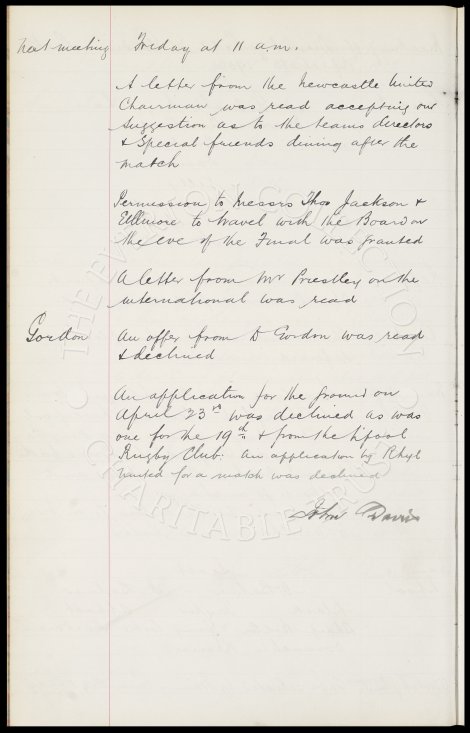 Next meeting Friday at 11 a.m.
A letter from the Newcastle United
Chairman was read accepting our
suggestion as to the teams directors
& Special friends dining after the
match
Permission to Messrs Thos Jackson &
Ellmore to travel with the Board on
the eve of the Final was granted
A letter from Mr Priestley on the
international was read
Gordon An offer from D Gordon was read
& declined
An application for the ground on
April 23rd was declined as was
one for the 19th & from the L'pool
Rugby Club. An application by Rhyl
United for a match was declined
John Davis
THE EVERTON COLLECTION
CHARITABLE TRUST